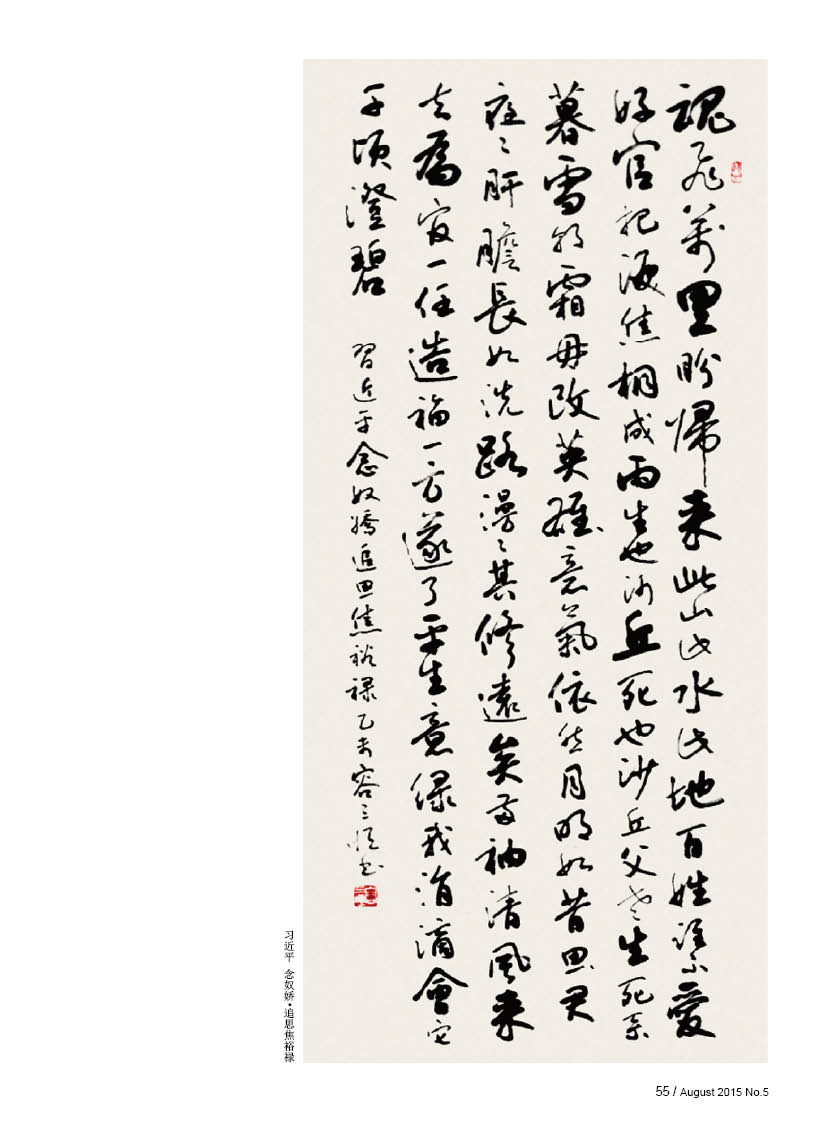 魂飛萬里盼歸來此山此水此地百姓誰不愛
好官把淚焦桐成雨生也沙丘死也沙丘父老生死系
暮雪朝霜毋改英雄意氣依然月明如昔思君
夜〻肝膽長如洗路漫〻其修遠矣兩袖清風來
去為官一任造福一方遂了平生意綠我涓滴會它
千頃澄碧
習近平念奴嬌追思焦裕祿乙未容三書
习近平 念奴娇·追思焦裕禄
55 / August 2015 No.5